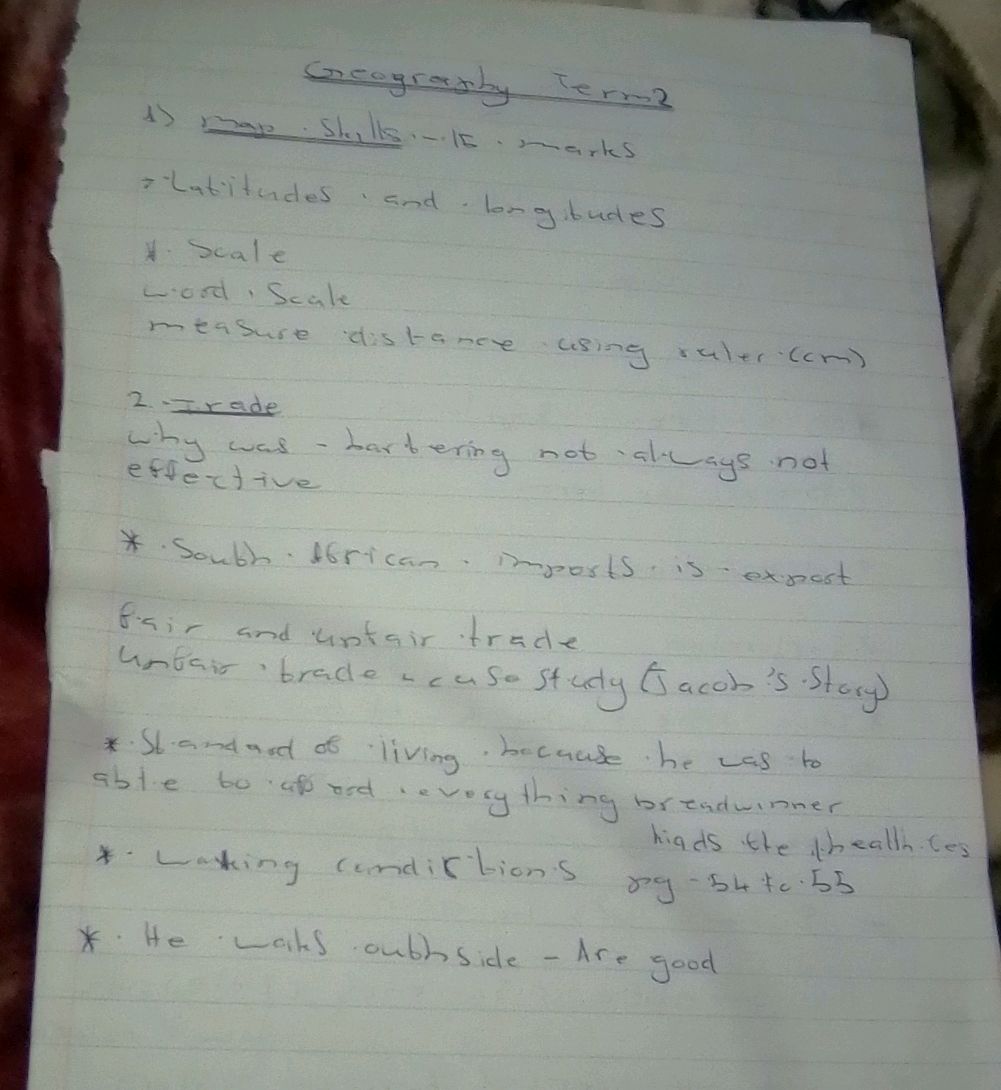 Geography Term 2
1) map skills - 15 marks
Latitudes and longitudes
* Scale
word scale
measure distance using ruler (cm)
2. Trade
why was - bartering not always not
effective
* South African imports is export
fair and unfair trade
unfair trade - case study (Jacob's Story)
* Standard of living because he was to
able to afford everything breadwinner
the
* Working conditions pg - 54 to 55
* He works outhside - Are good